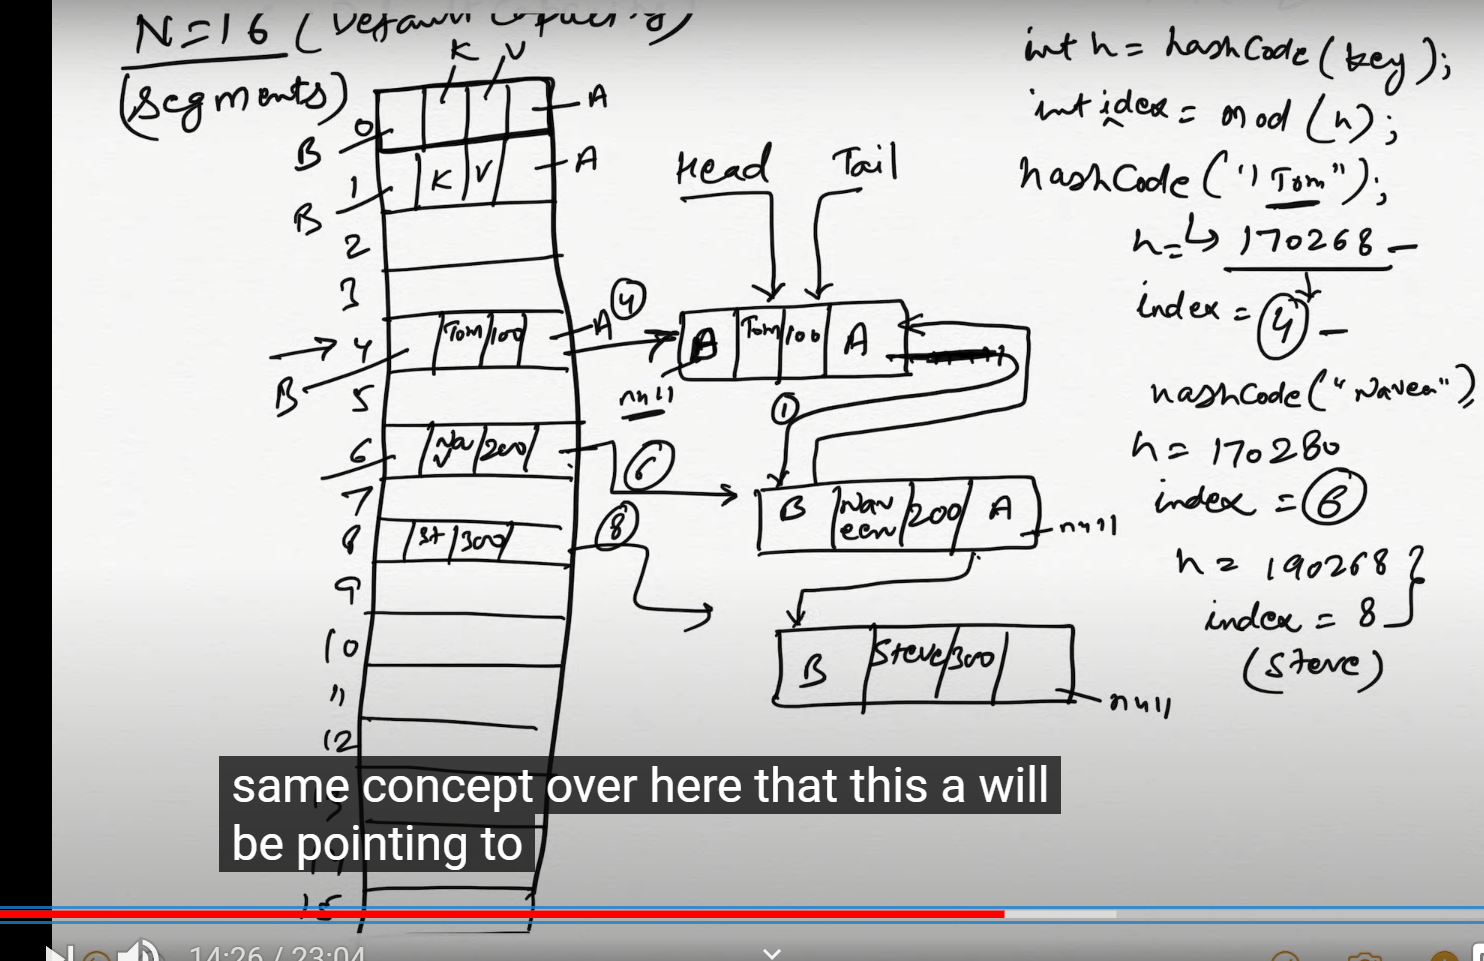 N=16 (Default Capacity)
(Segments)
K V
0
B
A
1
K V
B
A
2
3
4
Tom/100
A
4
B
5
6
Nav/200
6
7
8
St/300
8
9
10
11
12
13
14
15
Head Tail
B Tom/100 A
null
1
B Naveen/200 A
null
B Steve/300
null
int h = hashCode(key);
int idex = mod(h);
hashCode("Tom");
h= 170268
index = 4
hashCode("Naveen")
h = 170280
index = 6
h = 190268
index = 8
(Steve)
same concept over here that this a will
be pointing to
14:26 / 23:04